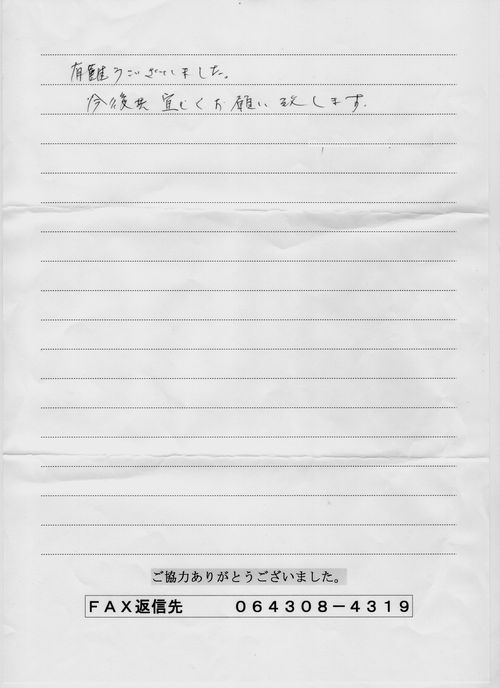 有難うございました。
今後共宜しくお願い致します.
ご協力ありがとうございました。
ＦＡＸ返信先　０６４３０８－４３１９